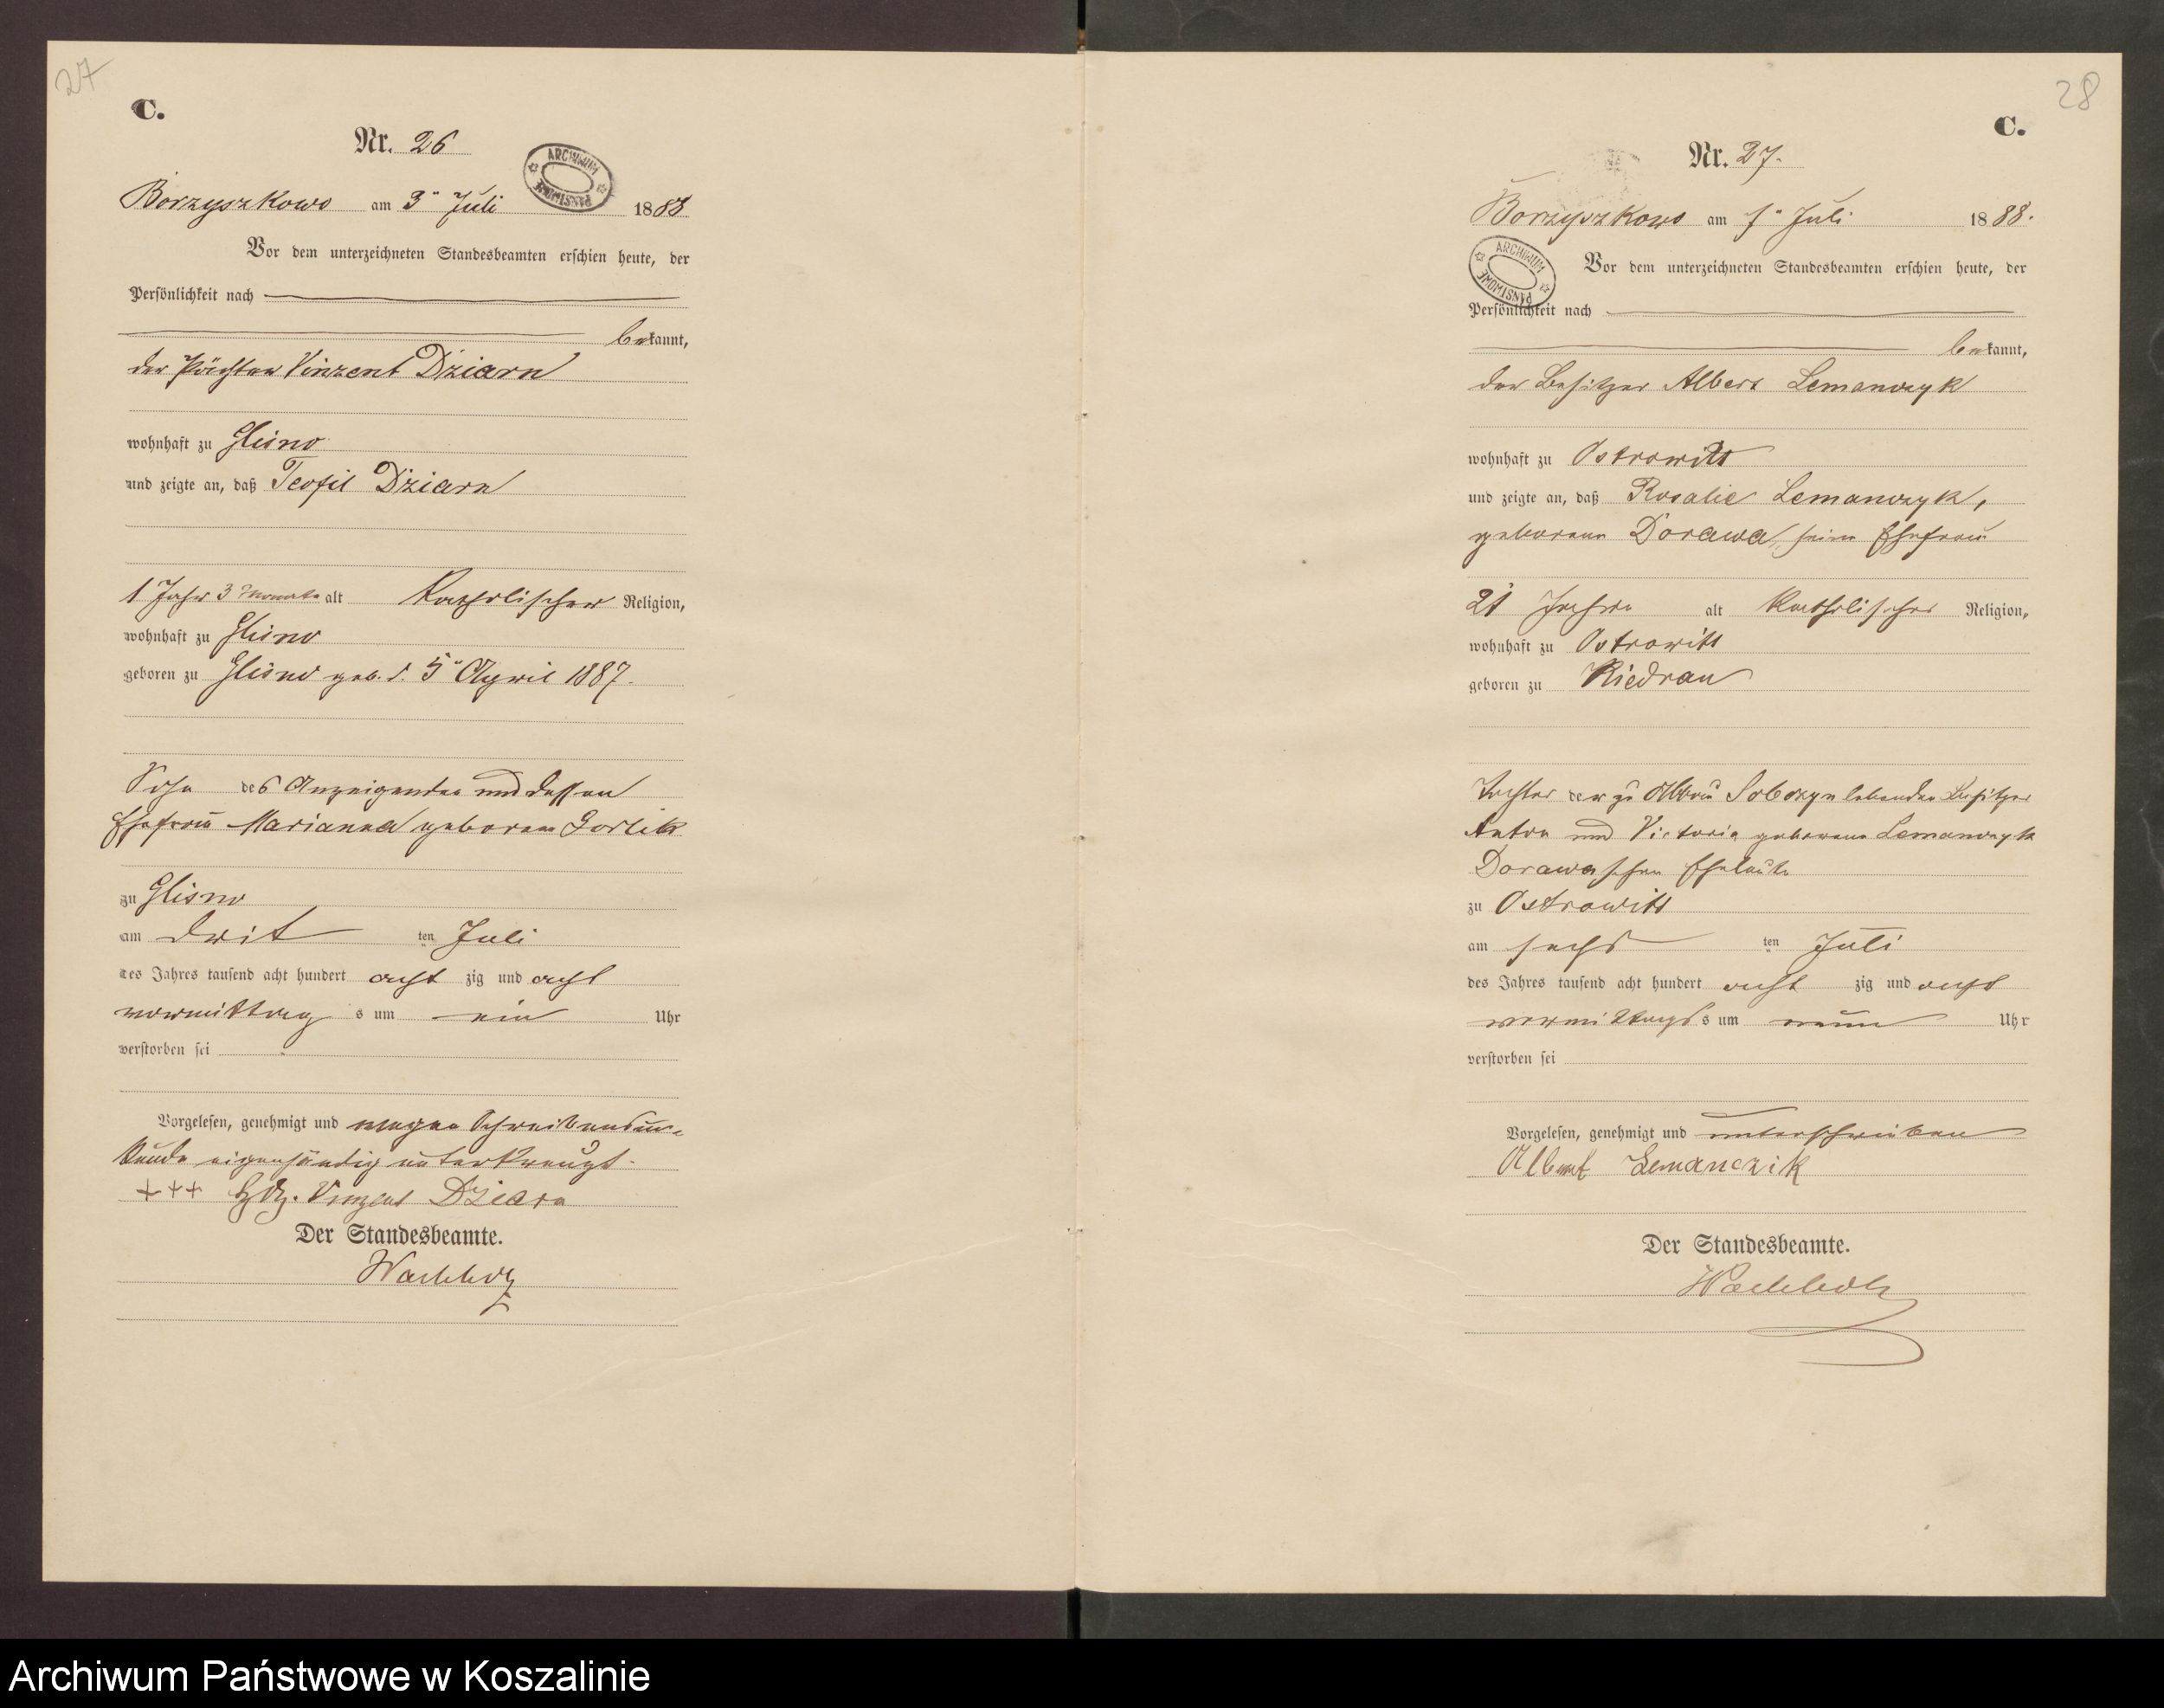 27
C.
Nr. 26
ARCHIWUM PAŃSTWOWE
Borzyszkowo am 3ten Juli 1888
Vor dem unterzeichneten Standesbeamten erschien heute, der
Persönlichkeit nach
bekannt,
der Pächter Vinzent Dziarn
wohnhaft zu Glisno
und zeigte an, daß Teofil Dziarn
1 Jahr 3 Monate alt Katholischer Religion,
wohnhaft zu Glisno
geboren zu Glisno geb. d. 5ten April 1887.
Sohn des Anzeigenden und dessen
Ehefrau Marianna geborene Gorlik
zu Glisno
am drit ten Juli
des Jahres tausend acht hundert acht zig und acht
vormittag s um ein Uhr
verstorben sei
Vorgelesen, genehmigt und wegen Schreibensun-
kunde eigenhändig unterkreuzt.
+++ Hdz. Vinzent Dziarn
Der Standesbeamte.
28
C.
Nr. 27.
Borzyszkowo am 7ten Juli 1888.
ARCHIWUM PAŃSTWOWE
Vor dem unterzeichneten Standesbeamten erschien heute, der
Persönlichkeit nach
bekannt,
der Besitzer Albert Lemanczyk
wohnhaft zu Ostrowitt
und zeigte an, daß Rosalie Lemanczyk,
geborene Dorawa, seine Ehefrau
21 Jahre alt Katholischer Religion,
wohnhaft zu Ostrowitt
geboren zu Kiedrau
Tochter der zu Abbau Sobczyn lebenden Besitzer
Anton und Victoria geborene Lemanczyk
Dorawaschen Eheleute
zu Ostrowitt
am sechs ten Juli
des Jahres tausend acht hundert acht zig und acht
vormittags s um neun Uhr
verstorben sei
Vorgelesen, genehmigt und unterschrieben
Albert Lemanczik
Der Standesbeamte.
Archiwum Państwowe w Koszalinie